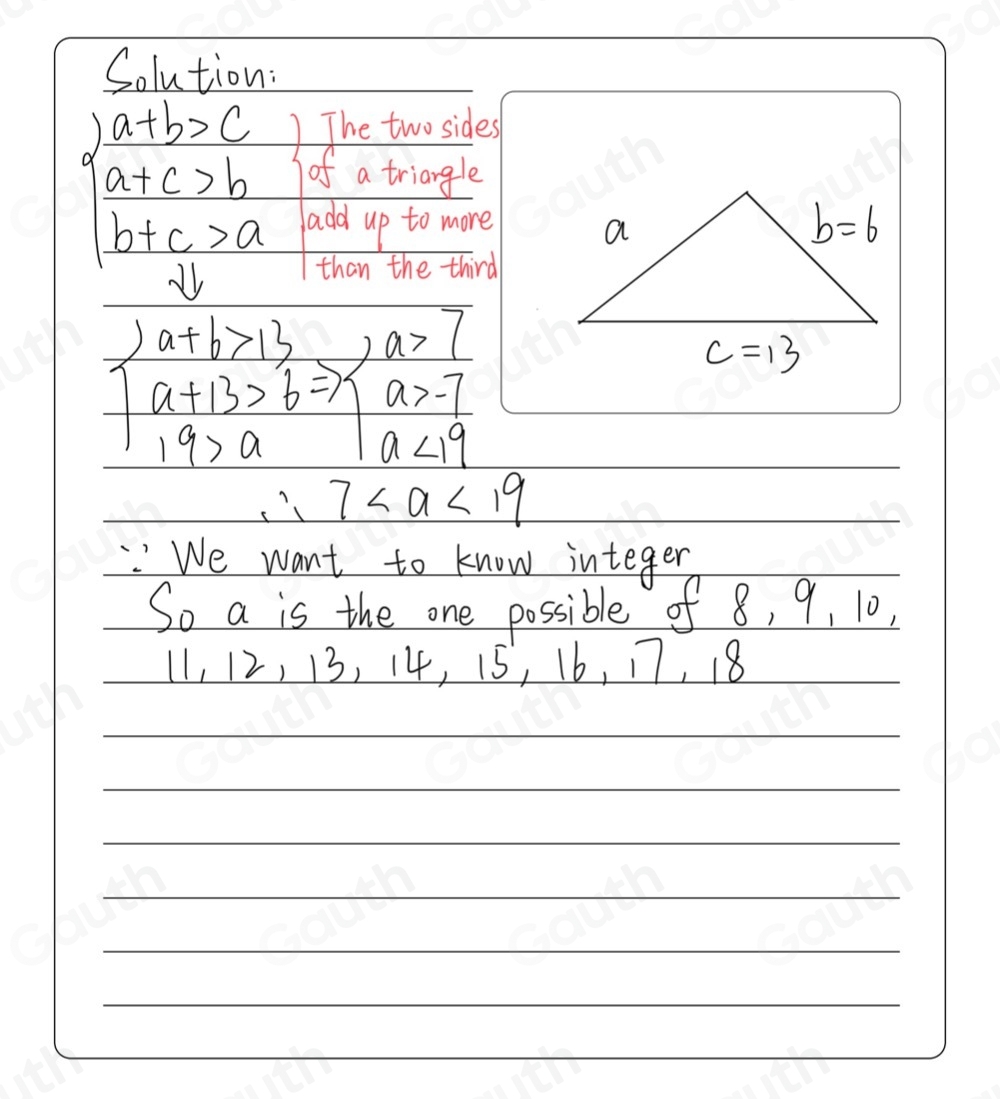 Solution:
a+b>C
a+c>b
b+c>a
The two sides
of a triangle
add up to more
than the third
a
b=6
c=13
⇓
a+6>13
a+13>6 ⇒
19>a
a>7
a>-7
a<19
∴ 7<a<19
∵ We want to know integer
So a is the one possible of 8, 9, 10,
11, 12, 13, 14, 15, 16, 17, 18
Gauth